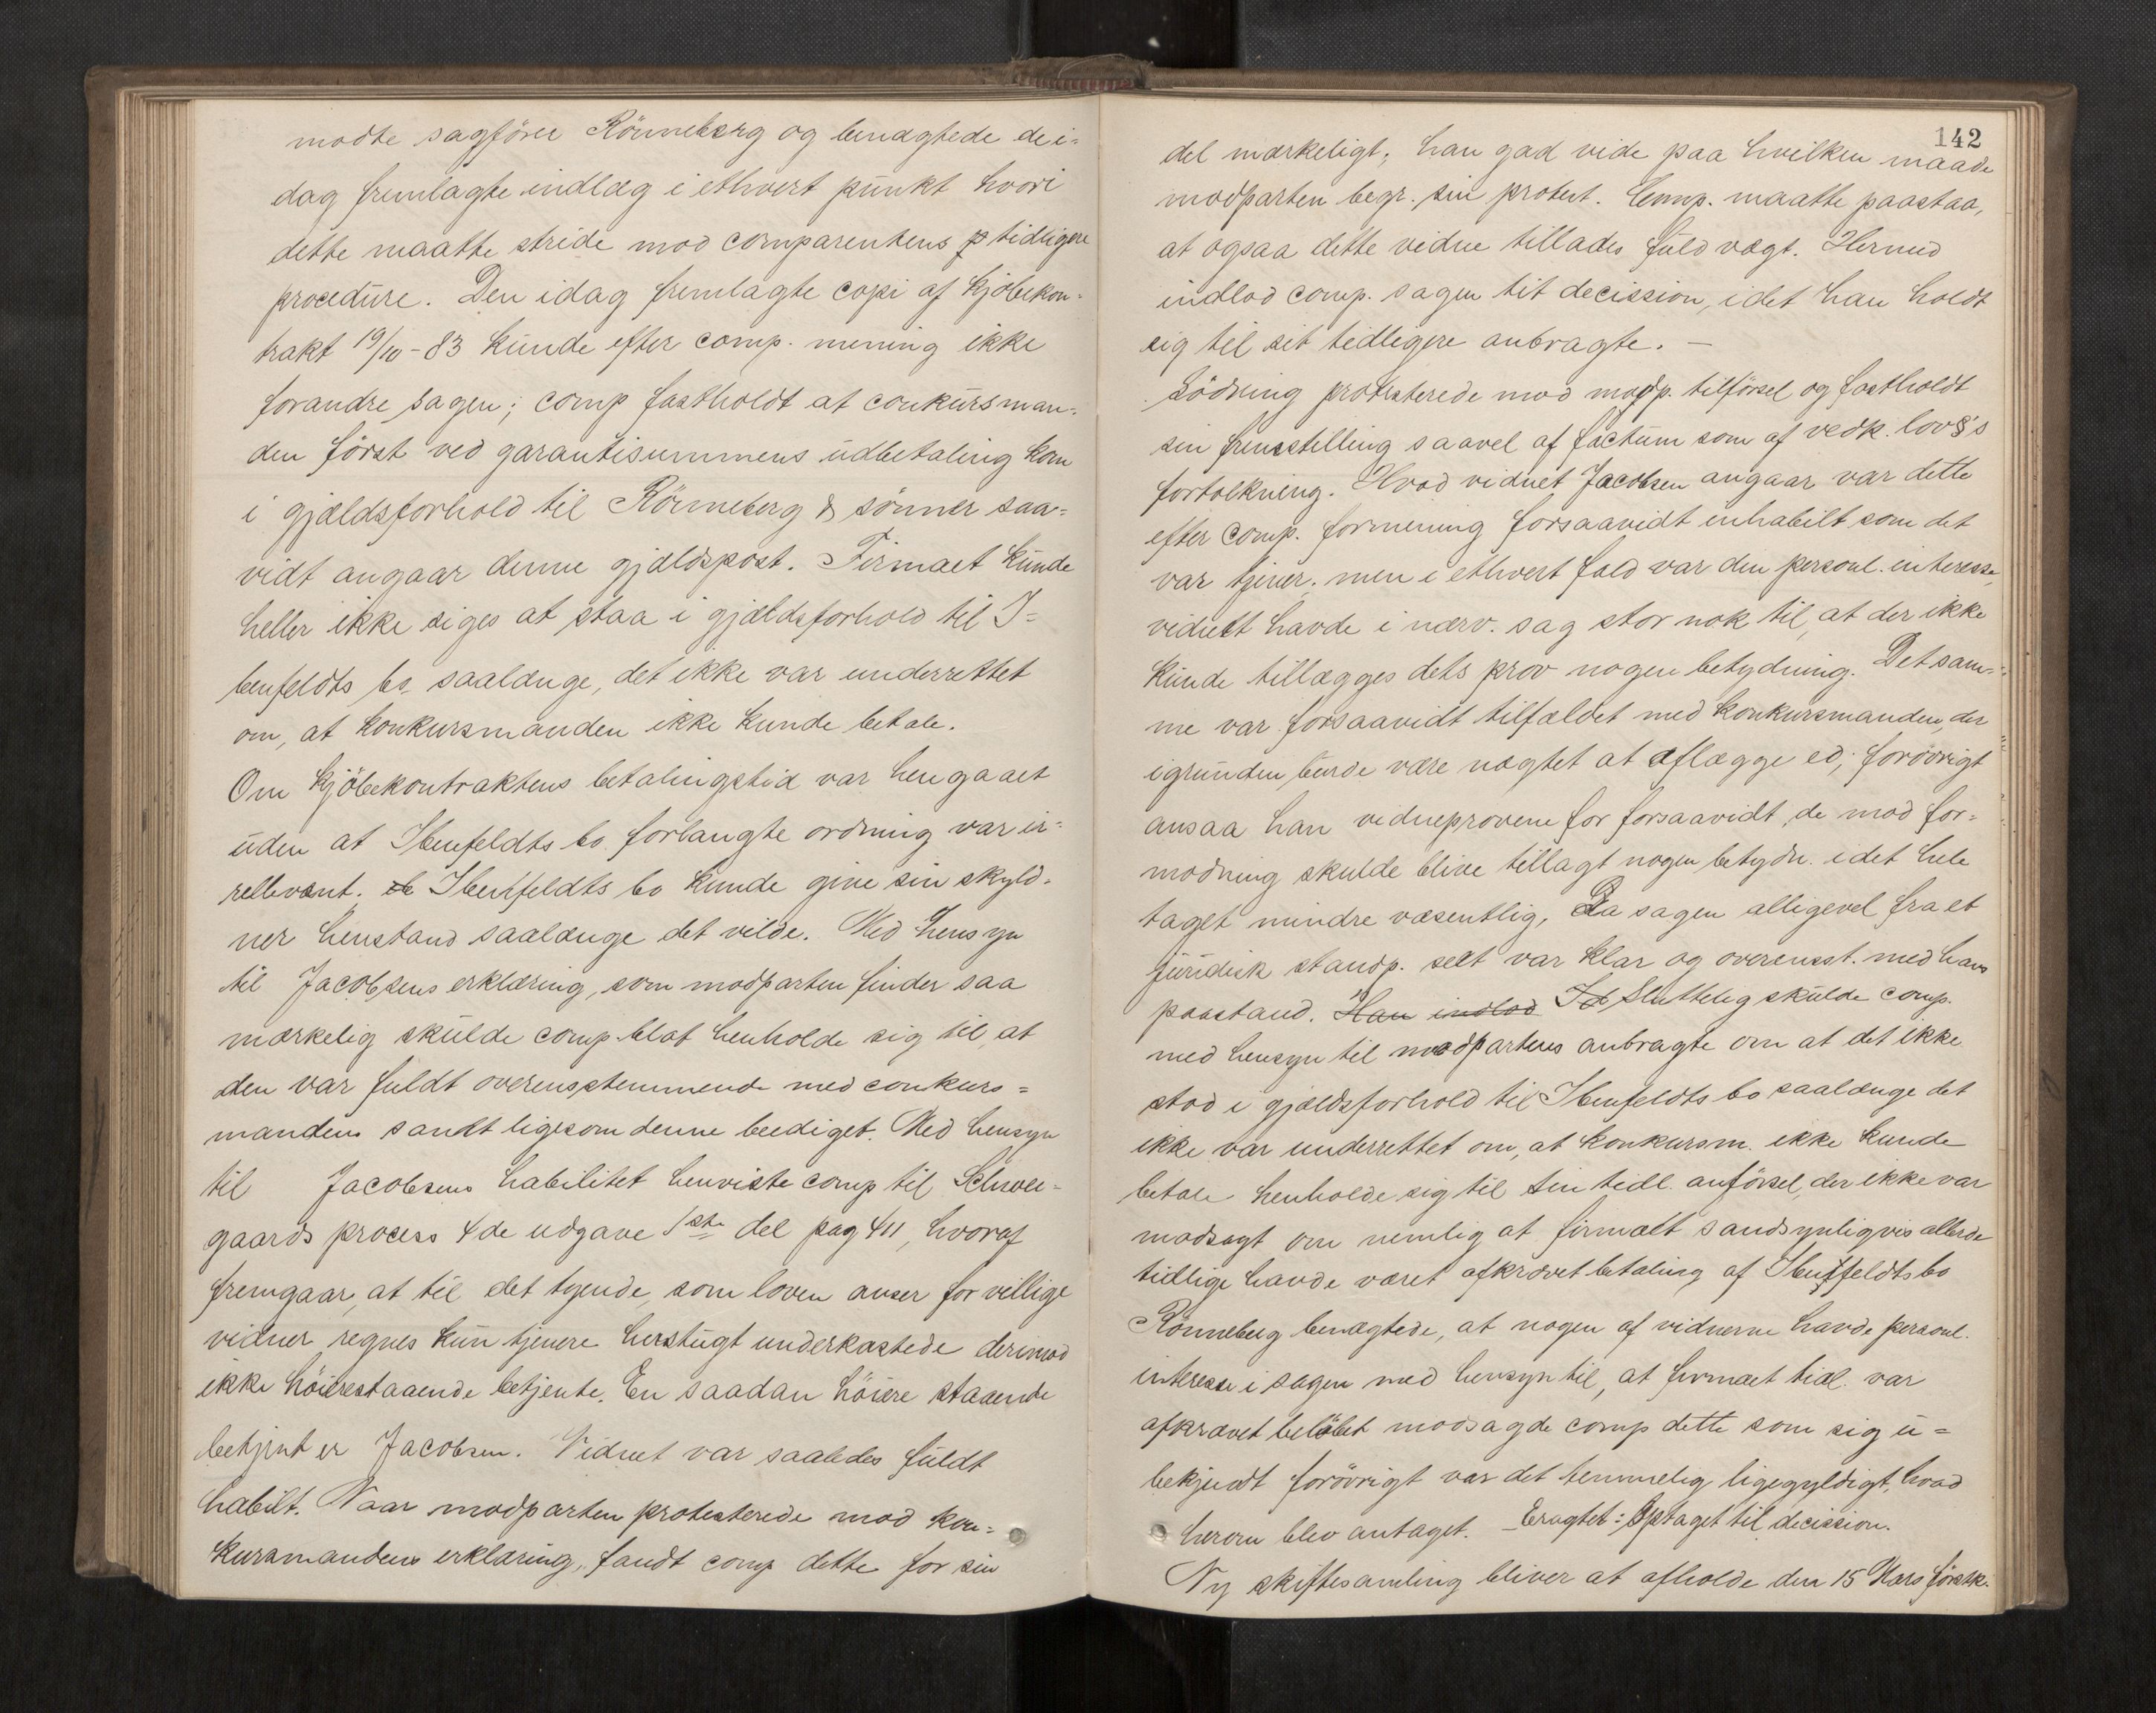 modte sagförer Rönneberg og benægtede de i-
dag fremlagte indlæg i ethvert punkt hvori
dette maatte stride mod comparentens p tidligere
procedure. Den idag fremlagte copi af kjöbekon-
trakt 19/10-83 kunde efter comp. mening ikke
forandre sagen; comp fastholdt at conkursman-
den först ved garantisummens udbetaling kom
i gjældsforhold til Rönneberg & sönner saa-
vidt angaar denne gjældspost. Firmaet kunde
heller ikke siges at staa i gjældsforhold til I-
benfeldts bo saalænge, det ikke var underrettet
om, at konkursmanden ikke kunde betale.
Om kjöbekontraktens betalingstid var hengaaet
uden at Ibenfeldts bo forlangte ordning var ir-
rellevant. Ibenfeldts bo kunde give sin skyld-
ner henstand saalænge det vilde. Med hensyn
til Jacobsens erklæring, som modparten finder saa
mærkelig skulde comp. blot henholde sig til, at
den var fuldt overensstemmende med conkurs-
mandens samt ligesom denne beediget. Med hensyn
til Jacobsens habilitet henviste comp til Schwei-
gaards process 4de udgave 1ste del pag 411, hvoraf
fremgaar, at til det tyende, som loven anser for villige
vidner regnes kun tjenere husbugt underkastede derimod
ikke höierestaaende betjente. En saadan höiere staaende
betjent er Jacobsen. Vidnet var saaledes fuldt
habilt. Naar modparten protesterede mod kon-
kursmandens erklæring, fandt comp dette for sin
142
del mærkeligt; han gad vide paa hvilken maade
modparten begr. sin protest. Comp. maatte paastaa,
at ogsaa dette vidne tillades fuld vægt. Hermed
indlod comp. sagen tit decission, idet han holdt
sig til sit tidligere anbragte. —
Lödning protesterede mod modp. tilförsel og fastholdt
sin fremstilling saavel af factum som af vedk. lov§'s
fortolkning. Hvad vidnet Jacobsen angaar var dette
efter comp. formening forsaavidt inhabilt som det
var tjener. men i ethvert fald var den personl. interesse,
vidnet havde i nærv. sag stor nok til, at der ikke
kunde tillægges dets prov nogen betydning. Det sam-
me var forsaavidt tilfældet med konkursmanden, der
igrunden burde være nægtet at aflægge ed; forövrigt
ansaa han vidneprovene for forsaavidt, de mod for-
modning skulde blive tillagt nogen betydn. i det hele
taget mindre væsentlig, da sagen alligevel fra et
juridisk standp. seet var klar og overensst. med hans
paastand. Han indlod Id Sluttelig skulde comp.
med hensyn til modpartens anbragte om at det ikke
stod i gjældsforhold til Ibenfeldts bo saalænge det
ikke var underrettet om, at konkursm. ikke kunde
betale henholde sig til sin tidl. anförsel, der ikke var
modsagt om nemlig at firmaet sandsynligvis allerde
tidlige havde været afkrævet betaling af Ibenfeldts bo
Rönneberg benægtede, at nogen af vidnerne havde personl.
interesse i sagen med hensyn til, at firmaet tidl. var
afkrævet belöbet modsagde comp dette som sig u-
bekjendt forövrigt var det temmelig ligegyldigt, hvad
herom blev antaget. Eragtet: Optaget til decission.
Ny skiftesamling bliver at afholde den 15 Mars förstk.